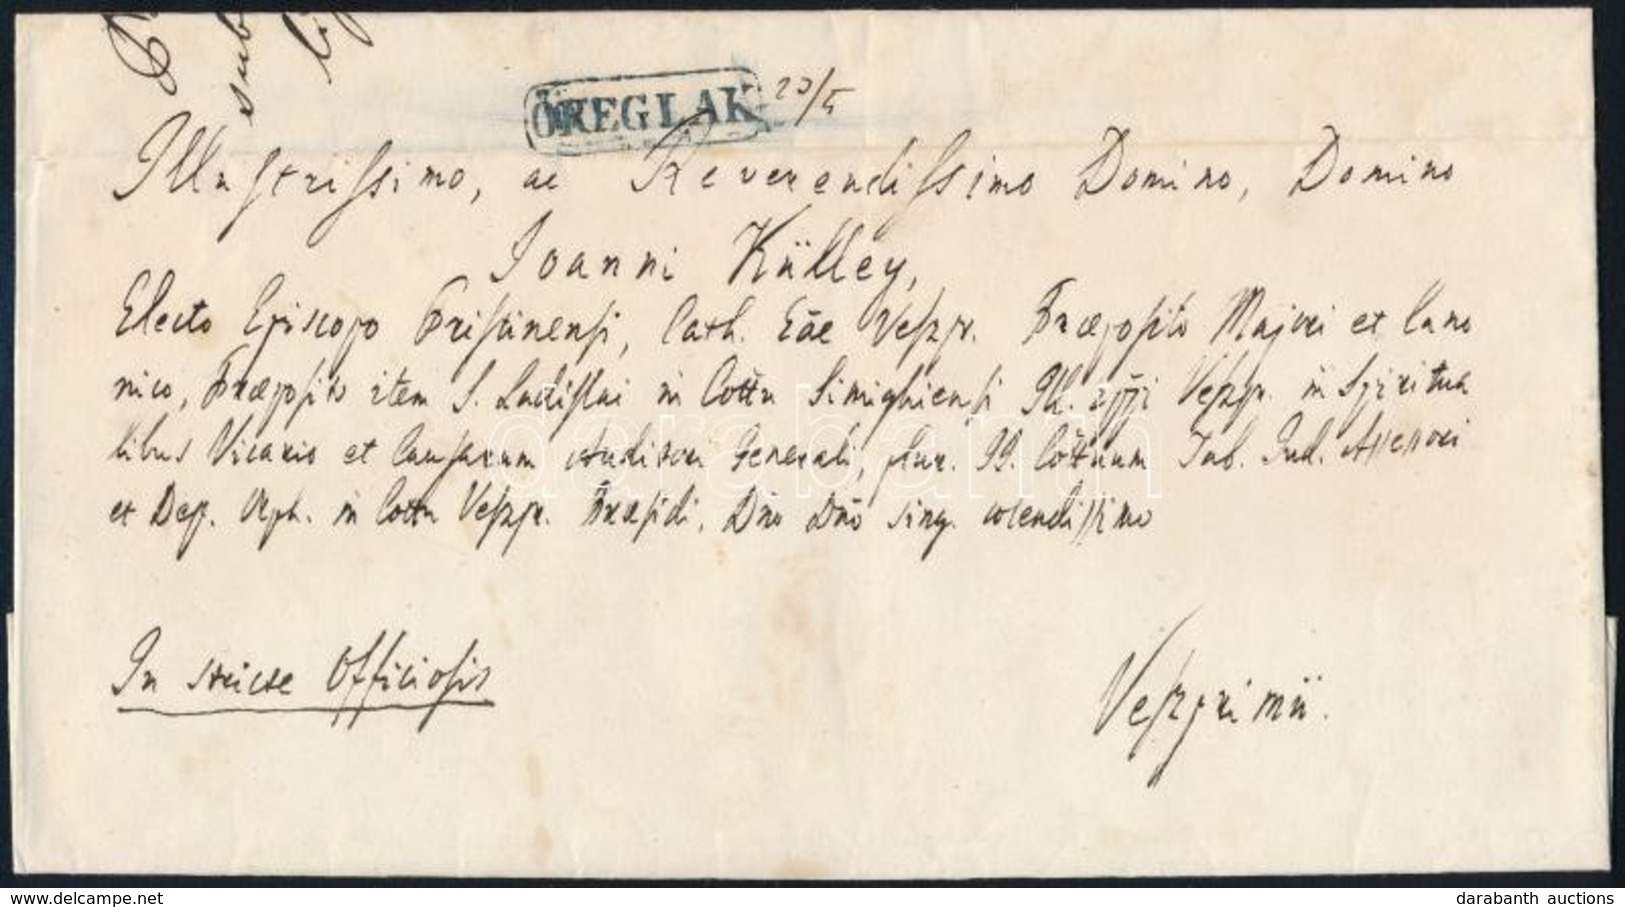 sub
ÖREGLAK 23/5
Illustrissimo, ac Reverendissimo Domino, Domino
Joanni Külley,
Electo Episcopo Pristinensi, Cath. Eãe Veszpr. Præposito Majori et Cano
nico, Præposito item S. Ladislai in Cottu Simighiensi Ill. Eppi Veszpr. in Spiritua
libus Vicario et Causarum Auditori Generali, plur. II. Cottuum Tab. Jud. Assessori
et Dep. Orph. in Cottu Veszpr. Præsidi, Dño Dño sing. colendissimo
In stricte Officiosis
Veszprimii.
darabanth
delcampe.net
darabanth auctions